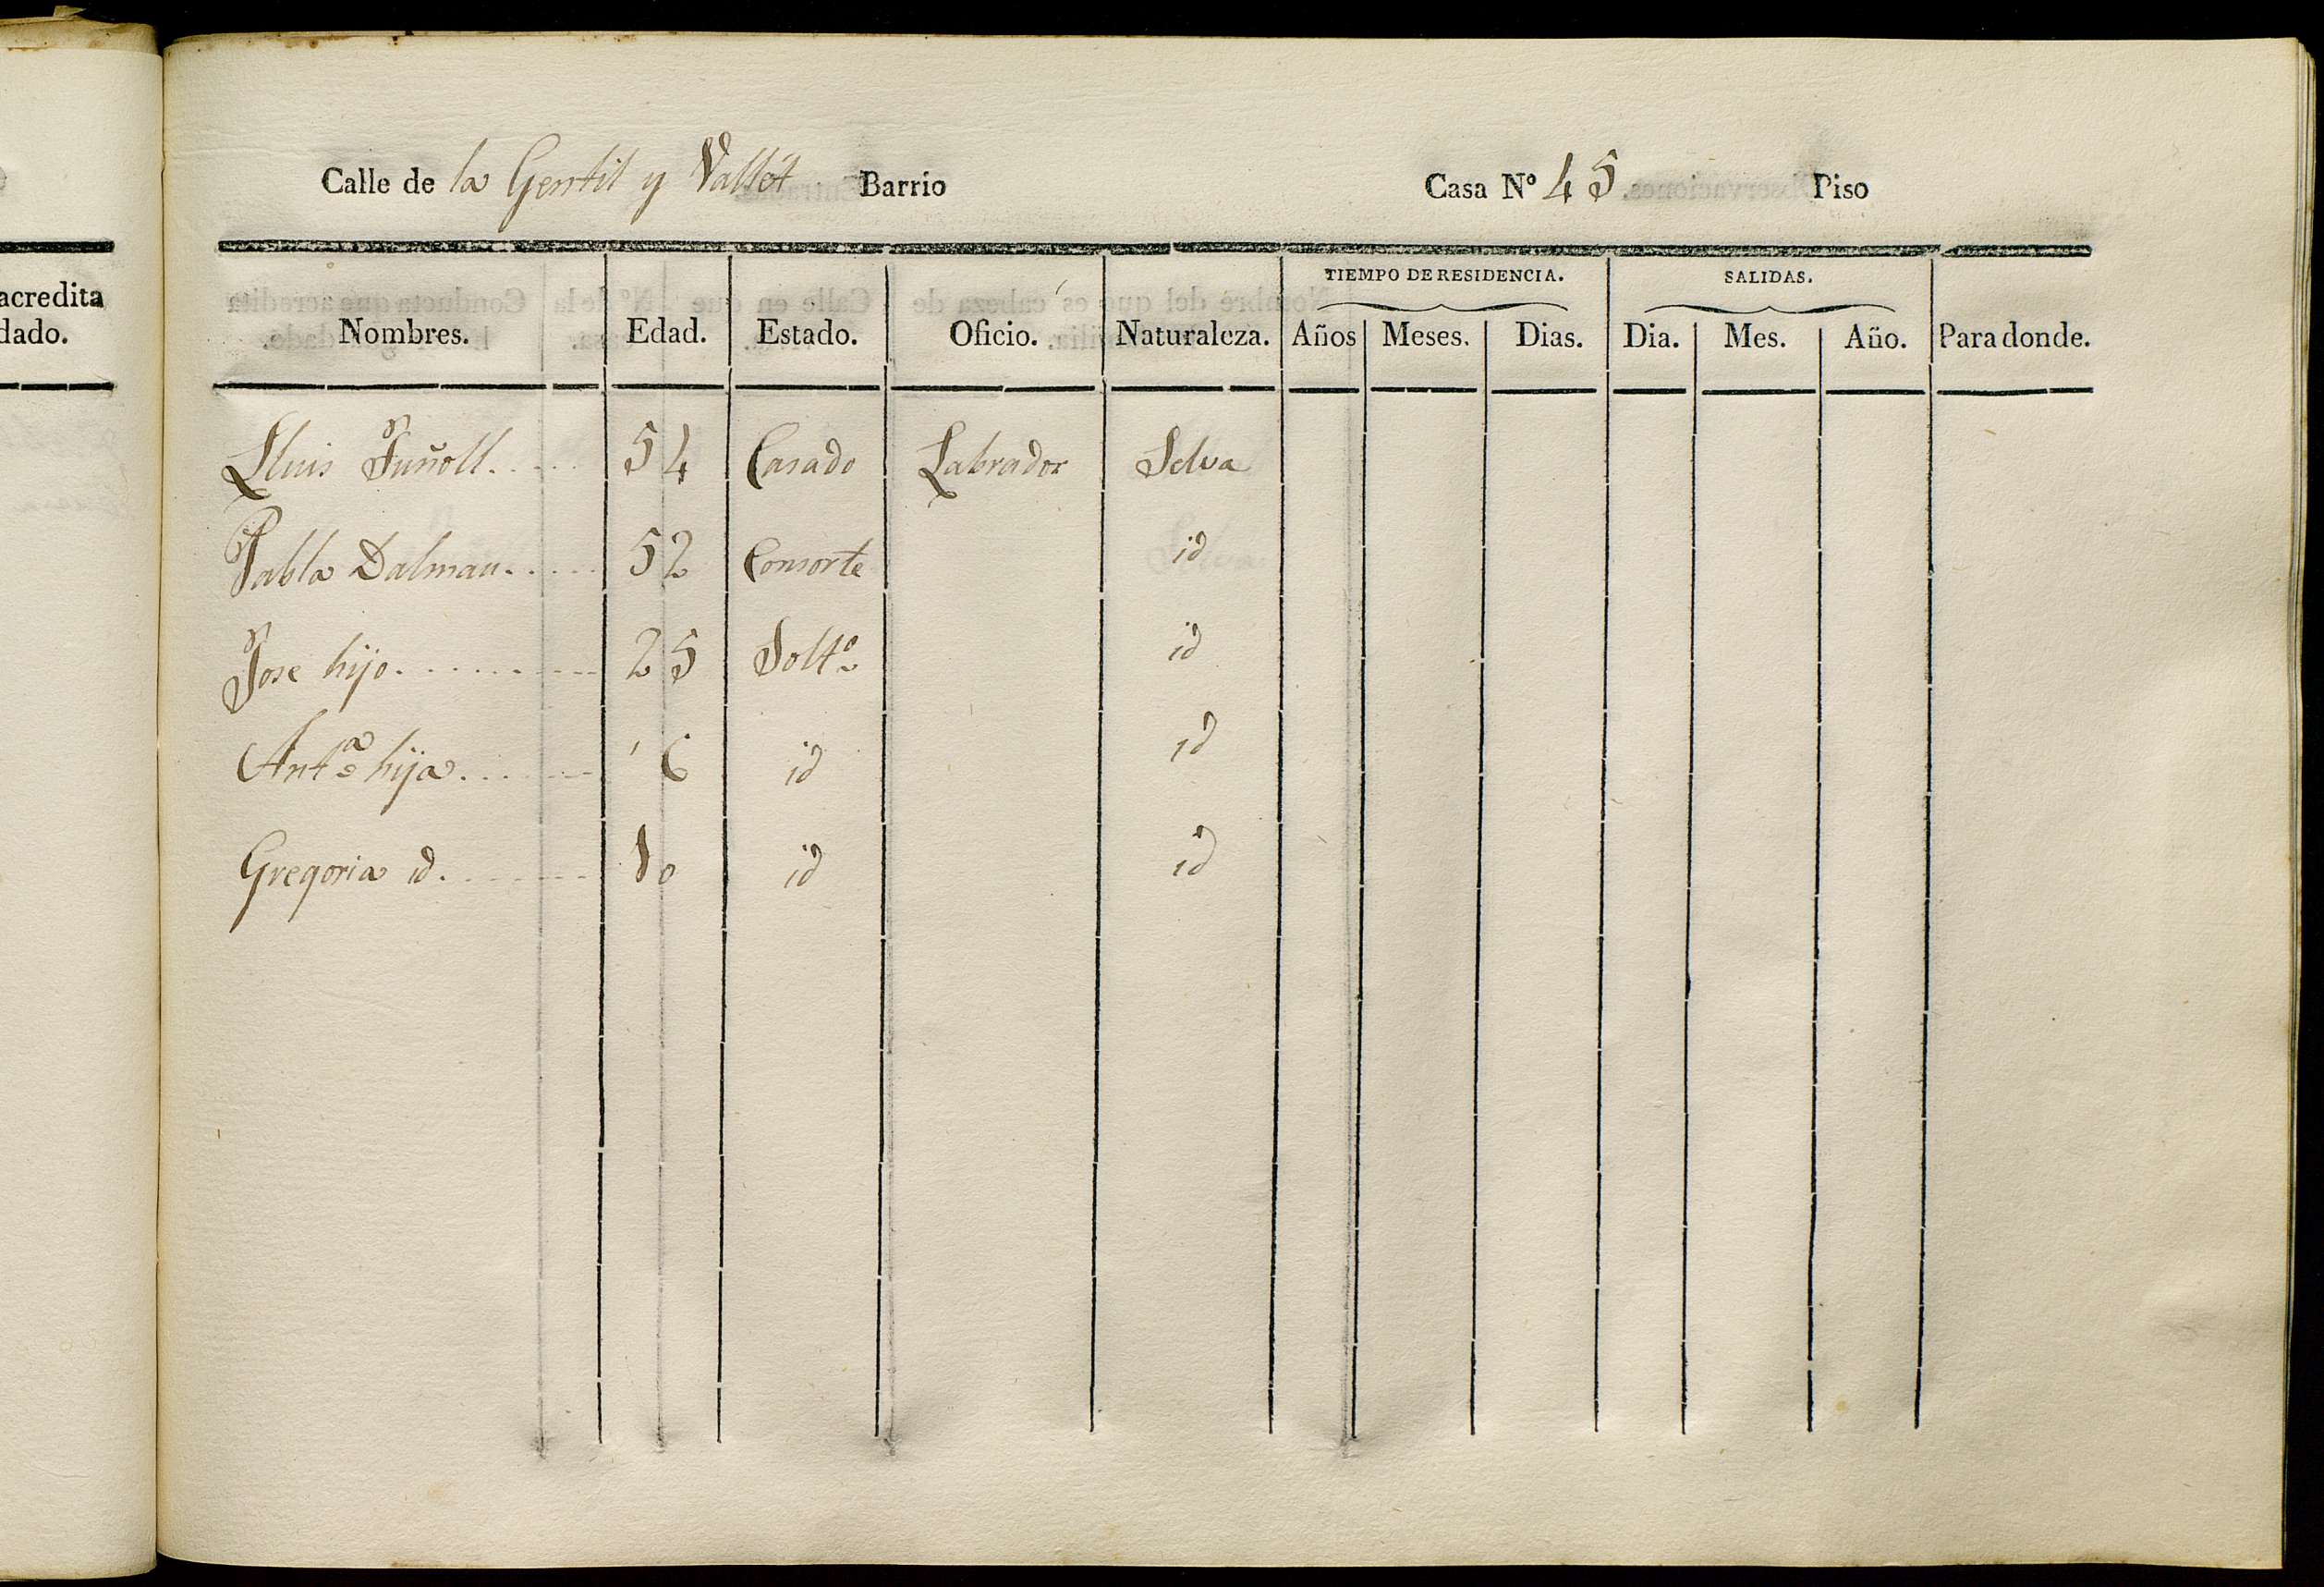 acredita
dado.
Calle de la Gentil y Vallét Barrio Casa Nº 45 Piso
TIEMPO DE RESIDENCIA. SALIDAS.
Nombres. Edad. Estado. Oficio. Naturaleza. Años Meses. Dias. Dia. Mes. Año. Para donde.
Lluis Fuñoll. 54 Casado Labrador Selva
Pabla Dalmau. 52 Consorte id
Jose hijo. 25 Solt.º id
Ant.ª hija. 16 id id
Gregoria id. 10 id id